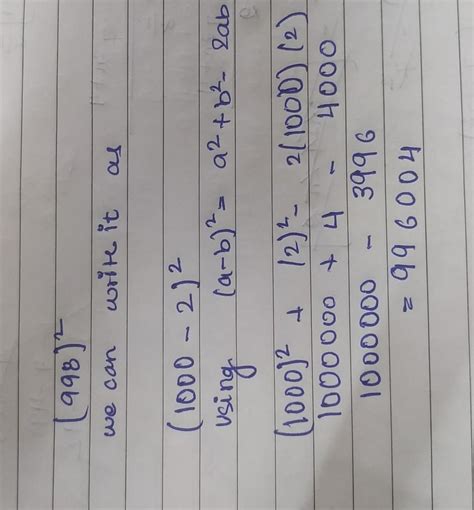 (998)²
we can write it as
(1000 - 2)²
using (a-b)² = a² + b² - 2ab
(1000)² + (2)² - 2(1000)(2)
1000000 + 4 - 4000
1000000 - 3996
= 996004